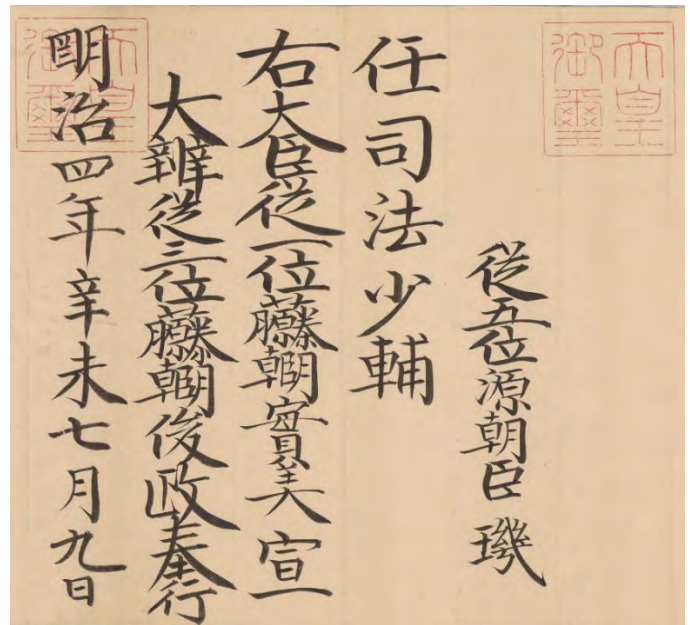 天皇
御璽
従五位源朝臣璣
任司法少輔
右大臣従一位藤原朝臣實美宣
大辨従三位藤原朝臣俊政奉行
明治四年辛未七月九日
天皇
御璽